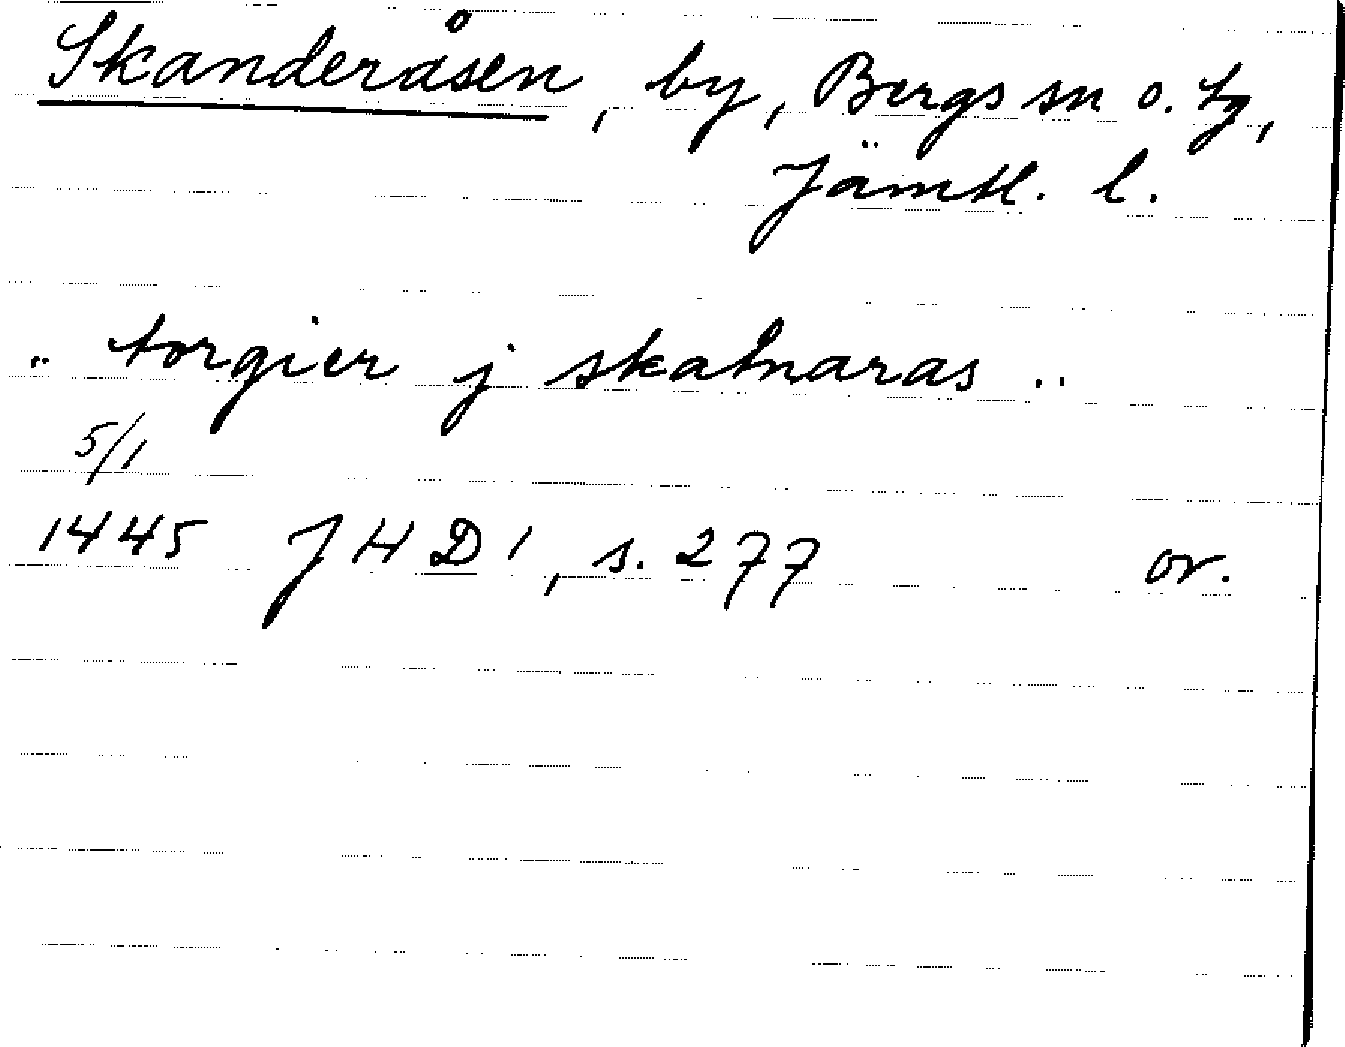 Skanderåsen, by, Bergs sn o. tg,
Jämtl. l.
.. torgier j skalnaras ..
5/1
1445 JHD 1, s. 277 or.